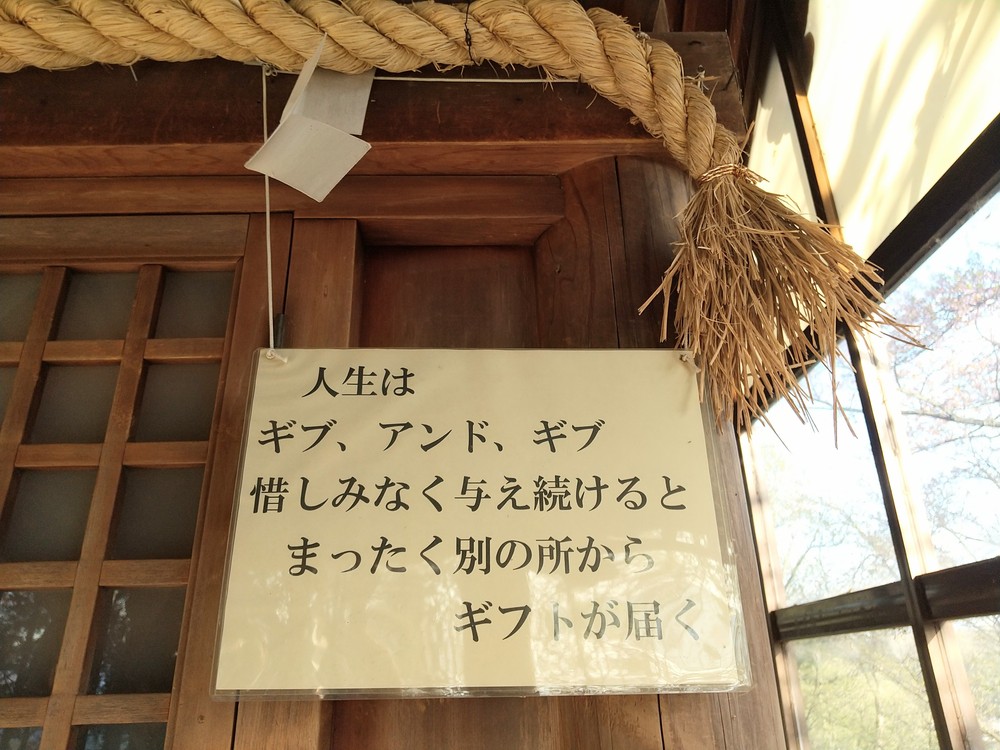 人生は
ギブ、アンド、ギブ
惜しみなく与え続けると
まったく別の所から
ギフトが届く